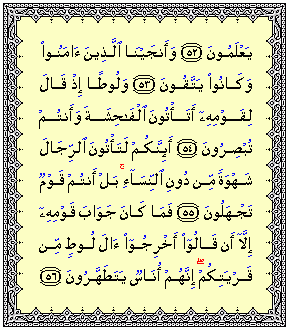 يَعْلَمُونَ ۝٥٢ وَأَنجَيْنَا ٱلَّذِينَ ءَامَنُوا۟
وَكَانُوا۟ يَتَّقُونَ ۝٥٣ وَلُوطًا إِذْ قَالَ
لِقَوْمِهِۦٓ أَتَأْتُونَ ٱلْفَٰحِشَةَ وَأَنتُمْ
تُبْصِرُونَ ۝٥٤ أَئِنَّكُمْ لَتَأْتُونَ ٱلرِّجَالَ
شَهْوَةً مِّن دُونِ ٱلنِّسَآءِ ۚ بَلْ أَنتُمْ قَوْمٌ
تَجْهَلُونَ ۝٥٥ فَمَا كَانَ جَوَابَ قَوْمِهِۦٓ
إِلَّآ أَن قَالُوٓا۟ أَخْرِجُوٓا۟ ءَالَ لُوطٍ مِّن
قَرْيَتِكُمْ ۖ إِنَّهُمْ أُنَاسٌ يَتَطَهَّرُونَ ۝٥٦